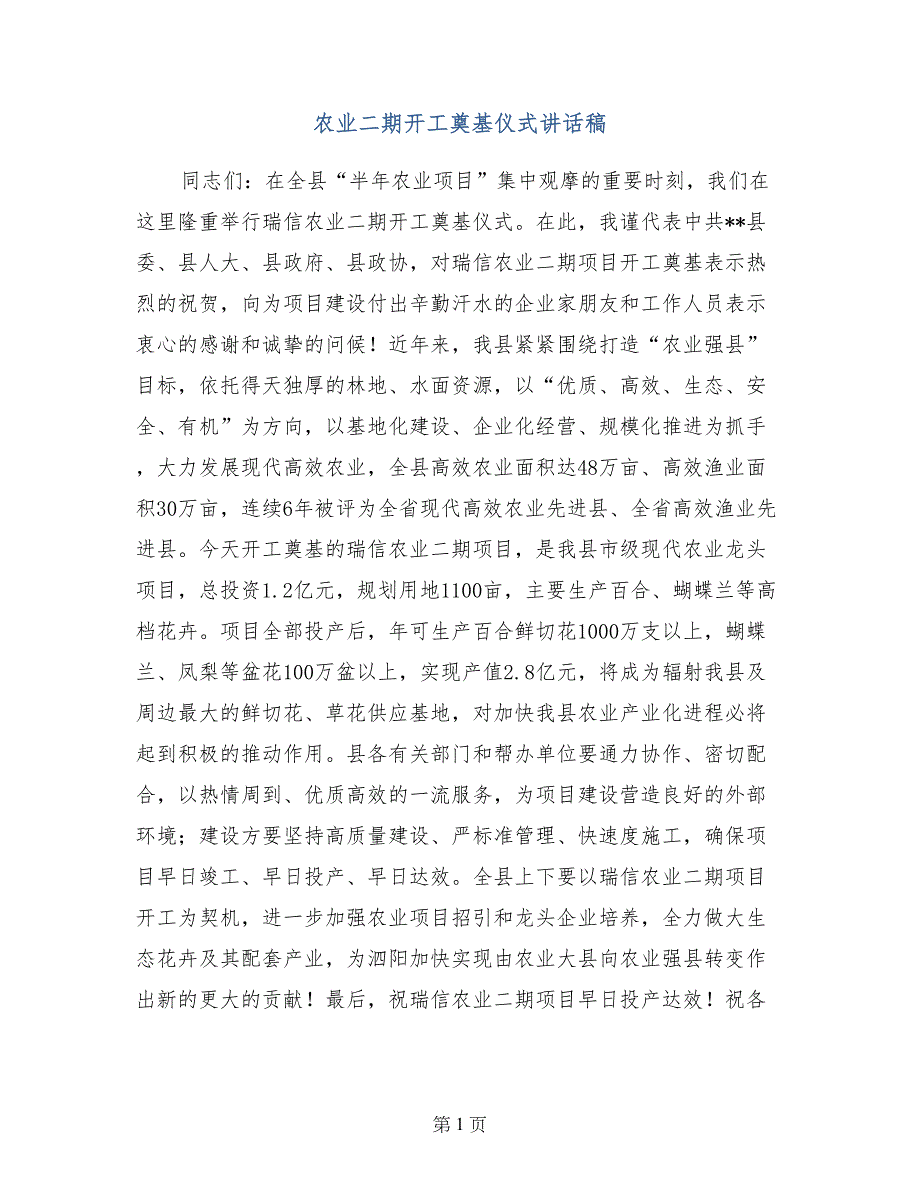 农业二期开工奠基仪式讲话稿
同志们：在全县“半年农业项目”集中观摩的重要时刻，我们在
这里隆重举行瑞信农业二期开工奠基仪式。在此，我谨代表中共**县
委、县人大、县政府、县政协，对瑞信农业二期项目开工奠基表示热
烈的祝贺，向为项目建设付出辛勤汗水的企业家朋友和工作人员表示
衷心的感谢和诚挚的问候！近年来，我县紧紧围绕打造“农业强县”
目标，依托得天独厚的林地、水面资源，以“优质、高效、生态、安
全、有机”为方向，以基地化建设、企业化经营、规模化推进为抓手
，大力发展现代高效农业，全县高效农业面积达48万亩、高效渔业面
积30万亩，连续6年被评为全省现代高效农业先进县、全省高效渔业先
进县。今天开工奠基的瑞信农业二期项目，是我县市级现代农业龙头
项目，总投资1.2亿元，规划用地1100亩，主要生产百合、蝴蝶兰等高
档花卉。项目全部投产后，年可生产百合鲜切花1000万支以上，蝴蝶
兰、凤梨等盆花100万盆以上，实现产值2.8亿元，将成为辐射我县及
周边最大的鲜切花、草花供应基地，对加快我县农业产业化进程必将
起到积极的推动作用。县各有关部门和帮办单位要通力协作、密切配
合，以热情周到、优质高效的一流服务，为项目建设营造良好的外部
环境；建设方要坚持高质量建设、严标准管理、快速度施工，确保项
目早日竣工、早日投产、早日达效。全县上下要以瑞信农业二期项目
开工为契机，进一步加强农业项目招引和龙头企业培养，全力做大生
态花卉及其配套产业，为泗阳加快实现由农业大县向农业强县转变作
出新的更大的贡献！最后，祝瑞信农业二期项目早日投产达效！祝各
第 1 页